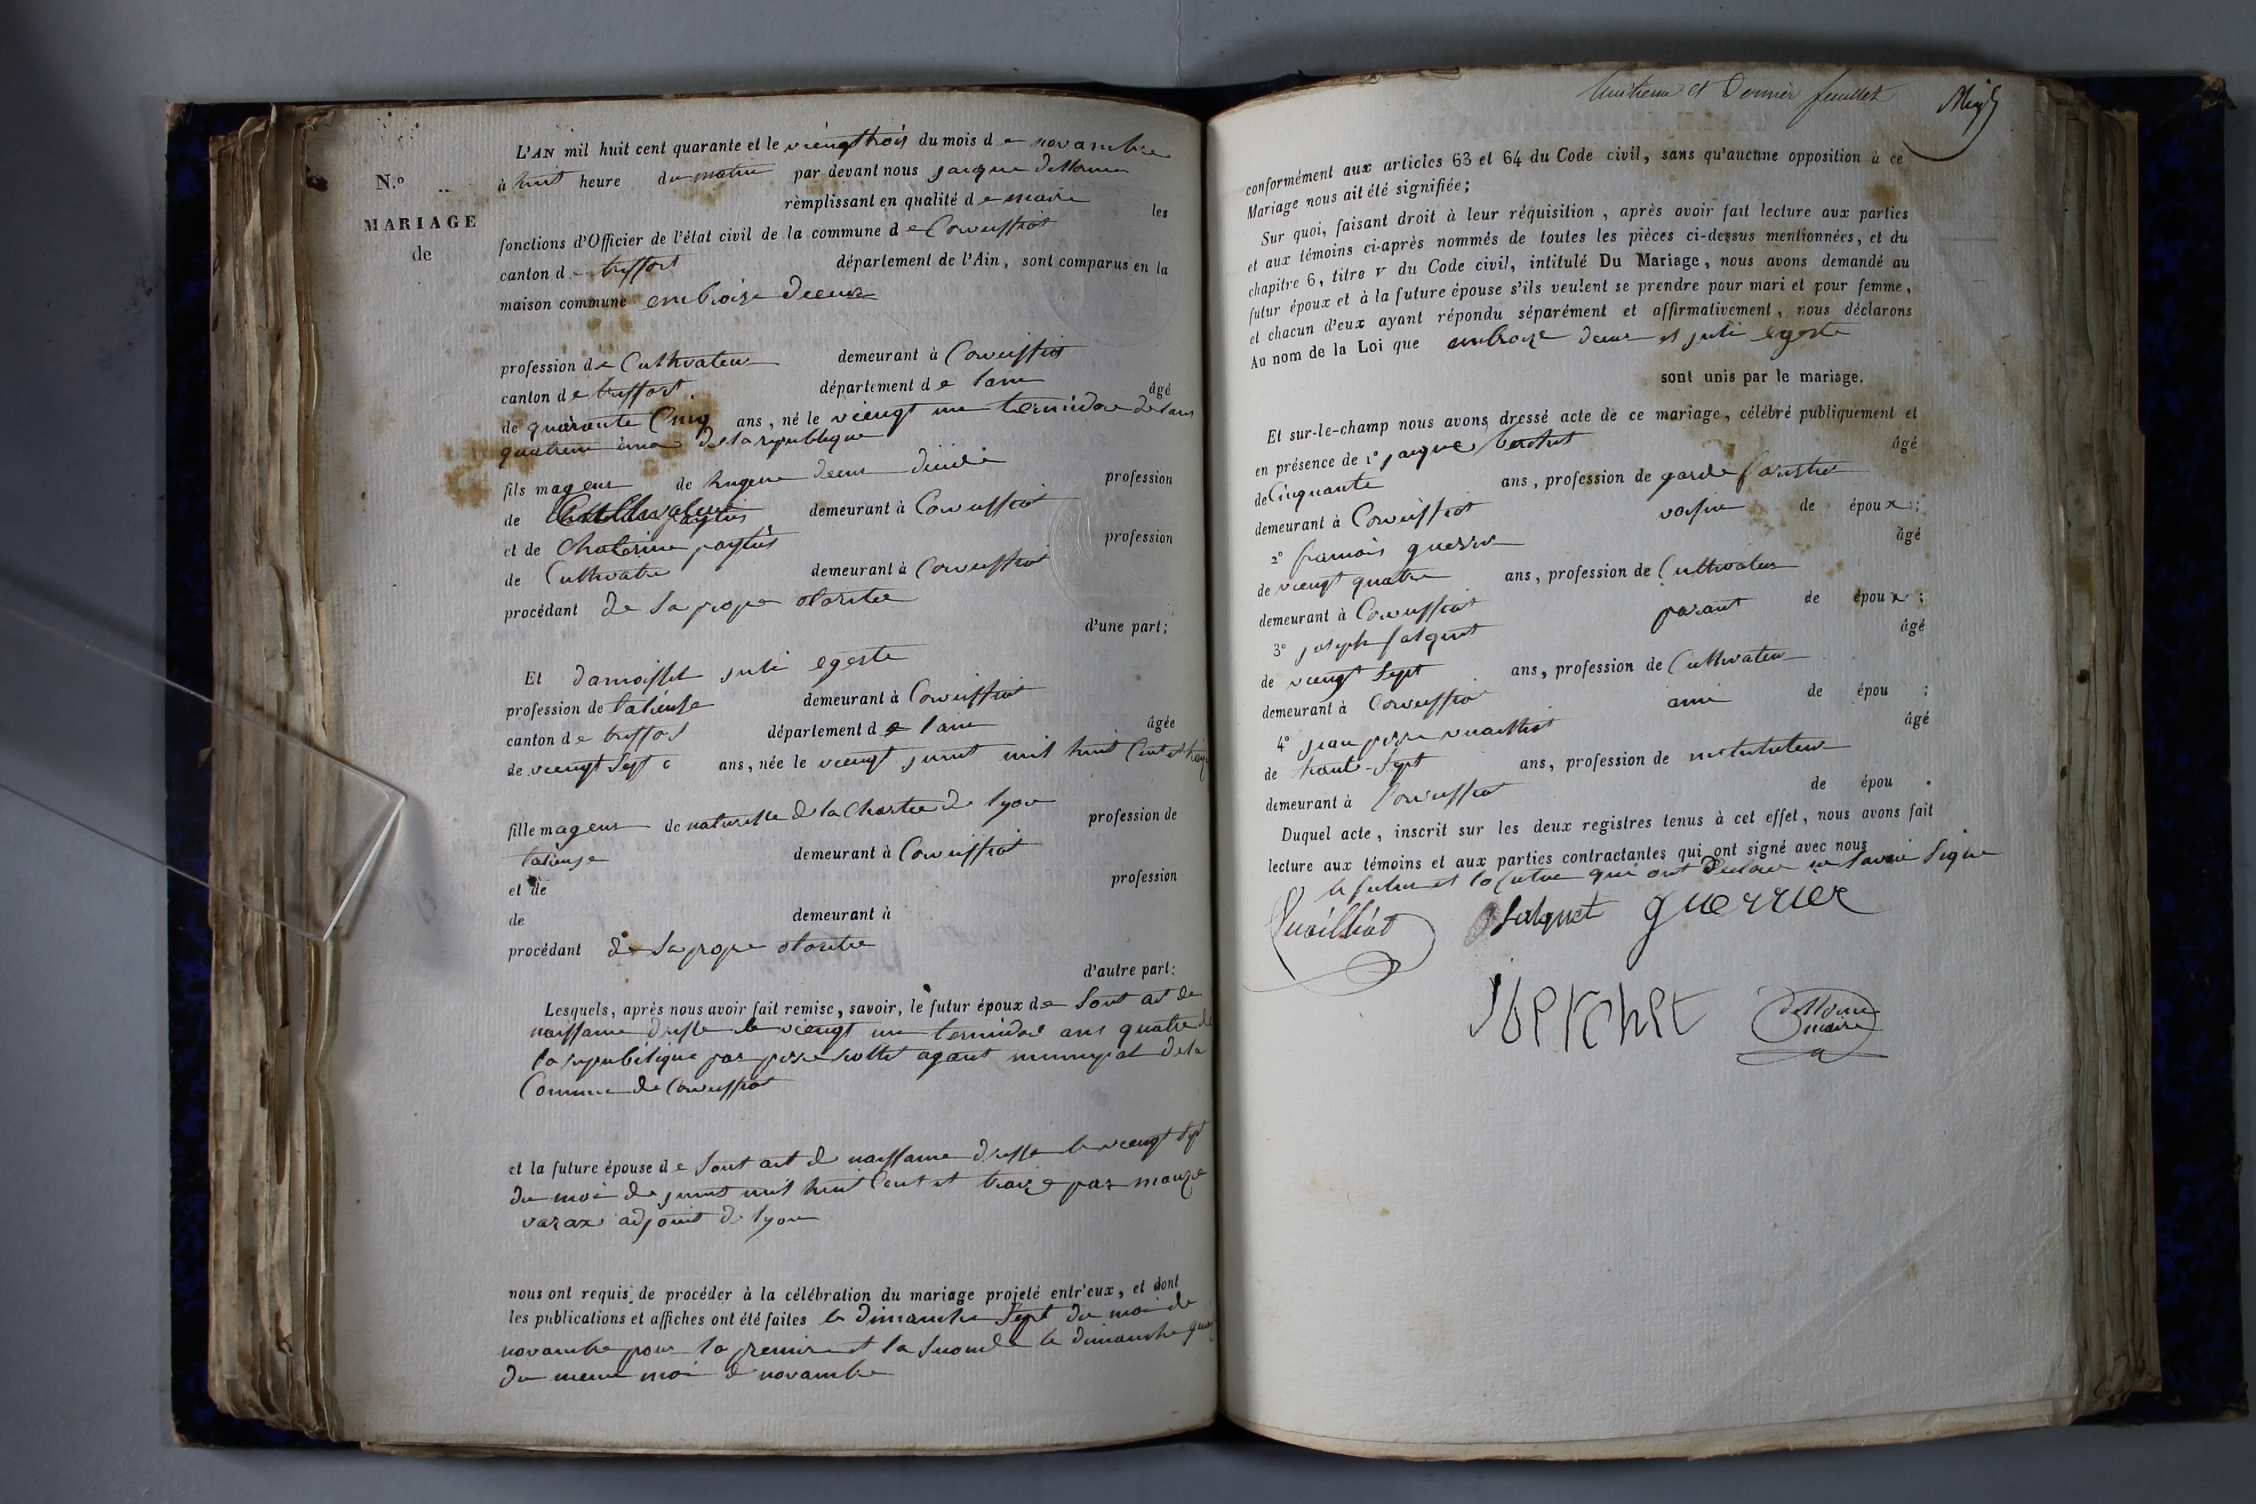 L'AN mil huit cent quarante et le viengt trois du mois de novambre
N.º
à huit heure du matin par devant nous jacque dellome
remplissant en qualité de maire les
MARIAGE
de
fonctions d'Officier de l'état civil de la commune de Corveissiat
canton de treffort département de l'Ain, sont comparus en la
maison commune
profession de Cultivateur demeurant à Corveissiat
canton de treffort département de l'ain âgé
de quarante Cinq ans, né le viengt un termidore de l'ans
quatrieme de la republique
fils mageur de profession
de demeurant à Corveissiat
et de Chatarine profession
de Cultivatre demeurant à Corveissiat
procédant de sa prope otoritee
d'une part;
Et damoiselle juli egeste
profession de talieuse demeurant à Corveissiat
canton de treffort département de l'ain âgée
de viengt Sept ans, née le viengt juint mil huit Cent et
fille mageur de naturelle de la Charitee de lyon profession de
talieuse demeurant à Corveissiat
et de profession
de demeurant à
procédant de sa prope otoritee
d'autre part;
Lesquels, après nous avoir fait remise, savoir, le futur époux de sont act de
naissance dresse le viengt un termidore ans quatre de
la republique par pierre agant municipal de la
Commune de Corveissiat
et la future épouse de sont act de naissance dresse le viengt sept
du moi de juint mil huit Cent et traize par
varax adjoint de lyon
nous ont requis de procéder à la célébration du mariage projeté entr'eux, et dont
les publications et affiches ont été faites le dimanche Sept du moi de
novambre pour la premiere et la seconde le dimanche
du meme moi de novambre
huitieme et Dernier feuillet
conformément aux articles 63 et 64 du Code civil, sans qu'aucune opposition à ce
Mariage nous ait été signifiée;
Sur quoi, faisant droit à leur réquisition, après avoir fait lecture aux parties
et aux témoins ci-après nommés de toutes les pièces ci-dessus mentionnées, et du
chapitre 6, titre v du Code civil, intitulé Du Mariage, nous avons demandé au
futur époux et à la future épouse s'ils veulent se prendre pour mari et pour femme,
et chacun d'eux ayant répondu séparément et affirmativement, nous déclarons
Au nom de la Loi que et juli egeste
sont unis par le mariage.
Et sur-le-champ nous avons dressé acte de ce mariage, célébré publiquement et
en présence de 1º jacque berchet âgé
de Cinquante ans, profession de garde forestier
demeurant à Corveissiat voisin de époux;
2º francois guerrier âgé
de viengt quatre ans, profession de Cultivateur
demeurant à Corveissiat parant de époux;
3º joseph salquet âgé
de viengt Sept ans, profession de Cultivateur
demeurant à Corveissiat ami de épou ;
4º jean pierre vuailliat âgé
de trante-Sept ans, profession de instituteur
demeurant à Corveissiat de épou .
Duquel acte, inscrit sur les deux registres tenus à cet effet, nous avons fait
lecture aux témoins et aux parties contractantes qui ont signé avec nous
le futur et la futue qui ont declare ne savoir signe
Vuailliat Salquet guerrier
berchet dellome
maire